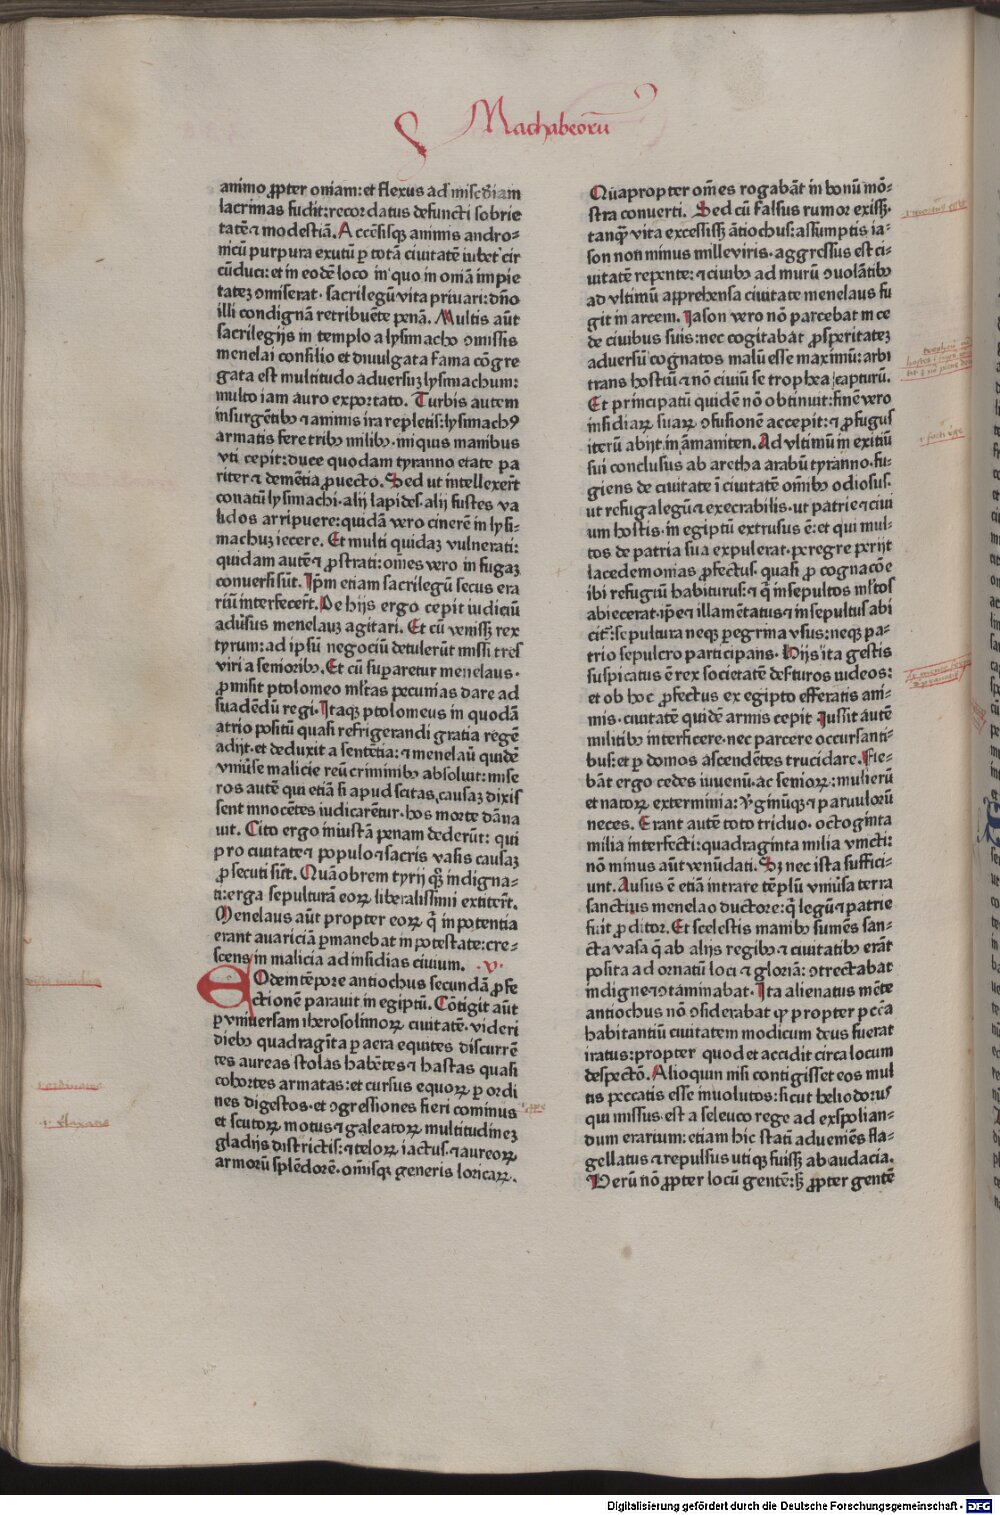 Machabeorū
animo ꝓpter oniam: et flexus ad misc̄diam
lacrimas fudit: recordatus defuncti sobrie
tatē ⁊ modestiā. Accēsisqꝫ animis andro-
nicū purpura exutū ꝑ totā ciuitatē iubet cir
cūduci: et in eodē loco in quo in oniā impie
tateꝫ ↄmiserat· sacrilegū vita priuari: dn̄o
illi condignā retribuēte penā. Multis aūt
sacrilegijs in templo a lysimacho ↄmissis
menelai consilio et diuulgata fama cōgre
gata est multitudo aduersuꝫ lysimachum:
multo iam auro exportato. Turbis autem
insurgētibꝰ ⁊ animis ira repletis: lysimachꝰ
armatis fere tribꝰ milibꝰ· iniquis manibus
vti cepit: duce quodam tyranno etate pa
riter ⁊ demētia ꝓuecto. Sed ut intellexerūt
conatū lysimachi· alij lapides· alij fustes va
lidos arripuere: quidā vero cinerē in lysi-
machuꝫ iecere. Et multi quidaꝫ vulnerati:
quidam autē ⁊ ꝓstrati: om̄es vero in fugaꝫ
conuersi sūt. Ip̄m etiam sacrilegū secus era
riū interfecert̄. De hijs ergo cepit iudiciū
adūsus menelauꝫ agitari. Et cū venissꝫ rex
tyrum: ad ipsū negociū detulerūt missi tres
viri a senioribꝰ. Et cū suꝑaretur menelaus·
ꝓmisit ptolomeo ml̄tas pecunias dare ad
suadēdū regi. Itaqꝫ ptolomeus in quodā
atrio positū quasi refrigerandi gratia regē
adijt· et deduxit a sentētia: ⁊ menelaū quidē
vniūse malicie reū criminibꝰ absoluit: mise
ros autē qui etiā si apud scitas causaꝫ dixis
sent innocētes iudicarētur· hos morte dāna
uit. Cito ergo iniustā penam dederūt: qui
pro ciuitate ⁊ populo ⁊ sacris vasis causaꝫ
ꝓsecuti sūt. Quāobrem tyrij qꝫ indigna-
ti: erga sepulturā eoꝝ liberalissimi extitert̄.
Menelaus aūt propter eoꝝ q̄ in potentia
erant auariciā ꝑmanebat in potestate: cre-
scens in malicia ad insidias ciuium. ·v·
Eodem tēpore antiochus secundā ꝓfe
ctionē parauit in egiptū. Cōtigit aūt
ꝑ vniuersam iherosolimoꝝ ciuitatē· videri
diebꝰ quadragīta ꝑ aera equites discurrē
tes aureas stolas habētes ⁊ hastas quasi
cohortes armatas: et cursus equoꝝ ꝑ ordi
nes digestos· et ↄgressiones fieri cominus
et scutoꝝ motus ⁊ galeatoꝝ multitudineꝫ
gladijs districtis: ⁊ teloꝝ iactus· ⁊ aureoꝝ
armorū splēdorē· om̄isqꝫ generis loricaꝝ.
Quapropter om̄es rogabāt in bonū mō-
stra conuerti. Sed cū falsus rumor exissꝫ·
tanqꝫ vita excessissꝫ ātiochus: assumptis ia-
son non minus mille viris· aggressus est ci-
uitatē repente: ⁊ ciuibꝰ ad murū ↄuolātibꝰ
ad vltimū apprehensa ciuitate menelaus fu
git in arcem. Iason vero nō parcebat in ce
de ciuibus suis: nec cogitabat ꝓsperitateꝫ
aduersū cognatos malū esse maximū: arbi
trans hostiū ⁊ nō ciuiū se trophea capturū.
Et principatū quidē nō obtinuit: finē vero
insidiaꝝ suaꝝ ↄfusionē accepit: ⁊ ꝓfugus
iterū abijt in āmaniten. Ad vltimū in exitiū
sui conclusus ab aretha arabū tyranno· fu-
giens de ciuitate ī ciuitatē om̄ibꝰ odiosus·
ut refuga legū ⁊ execrabilis· ut patrie ⁊ ciui
um hostis· in egiptū extrusus ē: et qui mul-
tos de patria sua expulerat· peregre perijt
lacedemonias ꝓfectus· quasi ꝓ cognacōe
ibi refugiū habiturus: ⁊ q̄ insepultos ml̄tos
abiecerat· ip̄e ⁊ illamētatus ⁊ insepultus abi
cit̄: sepultura neqꝫ ꝑegrina vsus: neqꝫ pa-
trio sepulcro participans. Hijs ita gestis
suspicatus ē rex societatē desturos iudeos:
et ob hoc ꝓfectus ex egipto efferatis ani-
mis· ciuitatē quidē armis cepit Iussit autē
militibꝰ interficere· nec parcere occursanti-
bus: et ꝑ domos ascendētes trucidare. Fie-
bāt ergo cedes iuuenū· ac senioꝝ: mulierū
et natoꝝ exterminia: v̄ginūqꝫ ⁊ paruulorū
neces. Erant autē toto triduo· octoginta
milia interfecti: quadraginta milia vincti:
nō minus aūt venūdati. Sꝫ nec ista suffici-
unt. Ausus ē etiā intrare tēplū vniūsa terra
sanctius menelao ductore: q̄ legū ⁊ patrie
fuit ꝓditor. Et scelestis manibꝰ sumēs san-
cta vasa q̄ ab alijs regibꝰ ⁊ ciuitatibꝰ erāt
posita ad ornatū loci ⁊ gloriā: ↄtrectabat
indigne ⁊ ↄtaminabat. Ita alienatus mēte
antiochus nō ↄsiderabat ꝙ propter pcc̄a
habitantiū ciuitatem modicum deus fuerat
iratus: propter quod et accidit circa locum
despectō. Alioquin nisi contigisset eos mul
tis peccatis esse inuolutos: sicut heliodorus
qui missus est a seleuco rege ad exspolian-
dum erarium: etiam hic statī adueniēs fla-
gellatus ⁊ repulsus utiqꝫ fuissꝫ ab audacia.
Verū nō ꝓpter locū gentē: sꝫ ꝓpter gentē
Digitalisierung gefördert durch die Deutsche Forschungsgemeinschaft · DFG